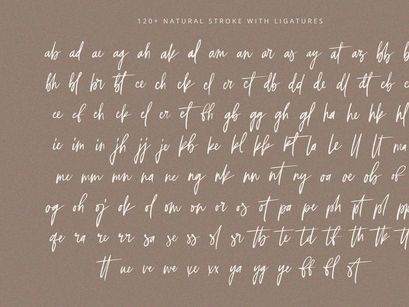 120+ NATURAL STROKE WITH LIGATURES
ab ad ae ag ah ak al am an ar as ay at ax bb
bh bl br bt ce ch ck cl cr ct db dd de dl dt eb
ee ef eh ek el er et fh gb gg gh gl ha he hk hl
ie im in jh jj je kb ke kl kk kt la le ll lt ma
me mm mn na ne ng nk nn nt ny oa oe ob of
og oh oj ok ol om on or os ot pa pe ph pt pl
qe ra re rr sa se ss sl sr tb te td tf th tk
tt ue ve we xe xx ya yg ye ff fl st